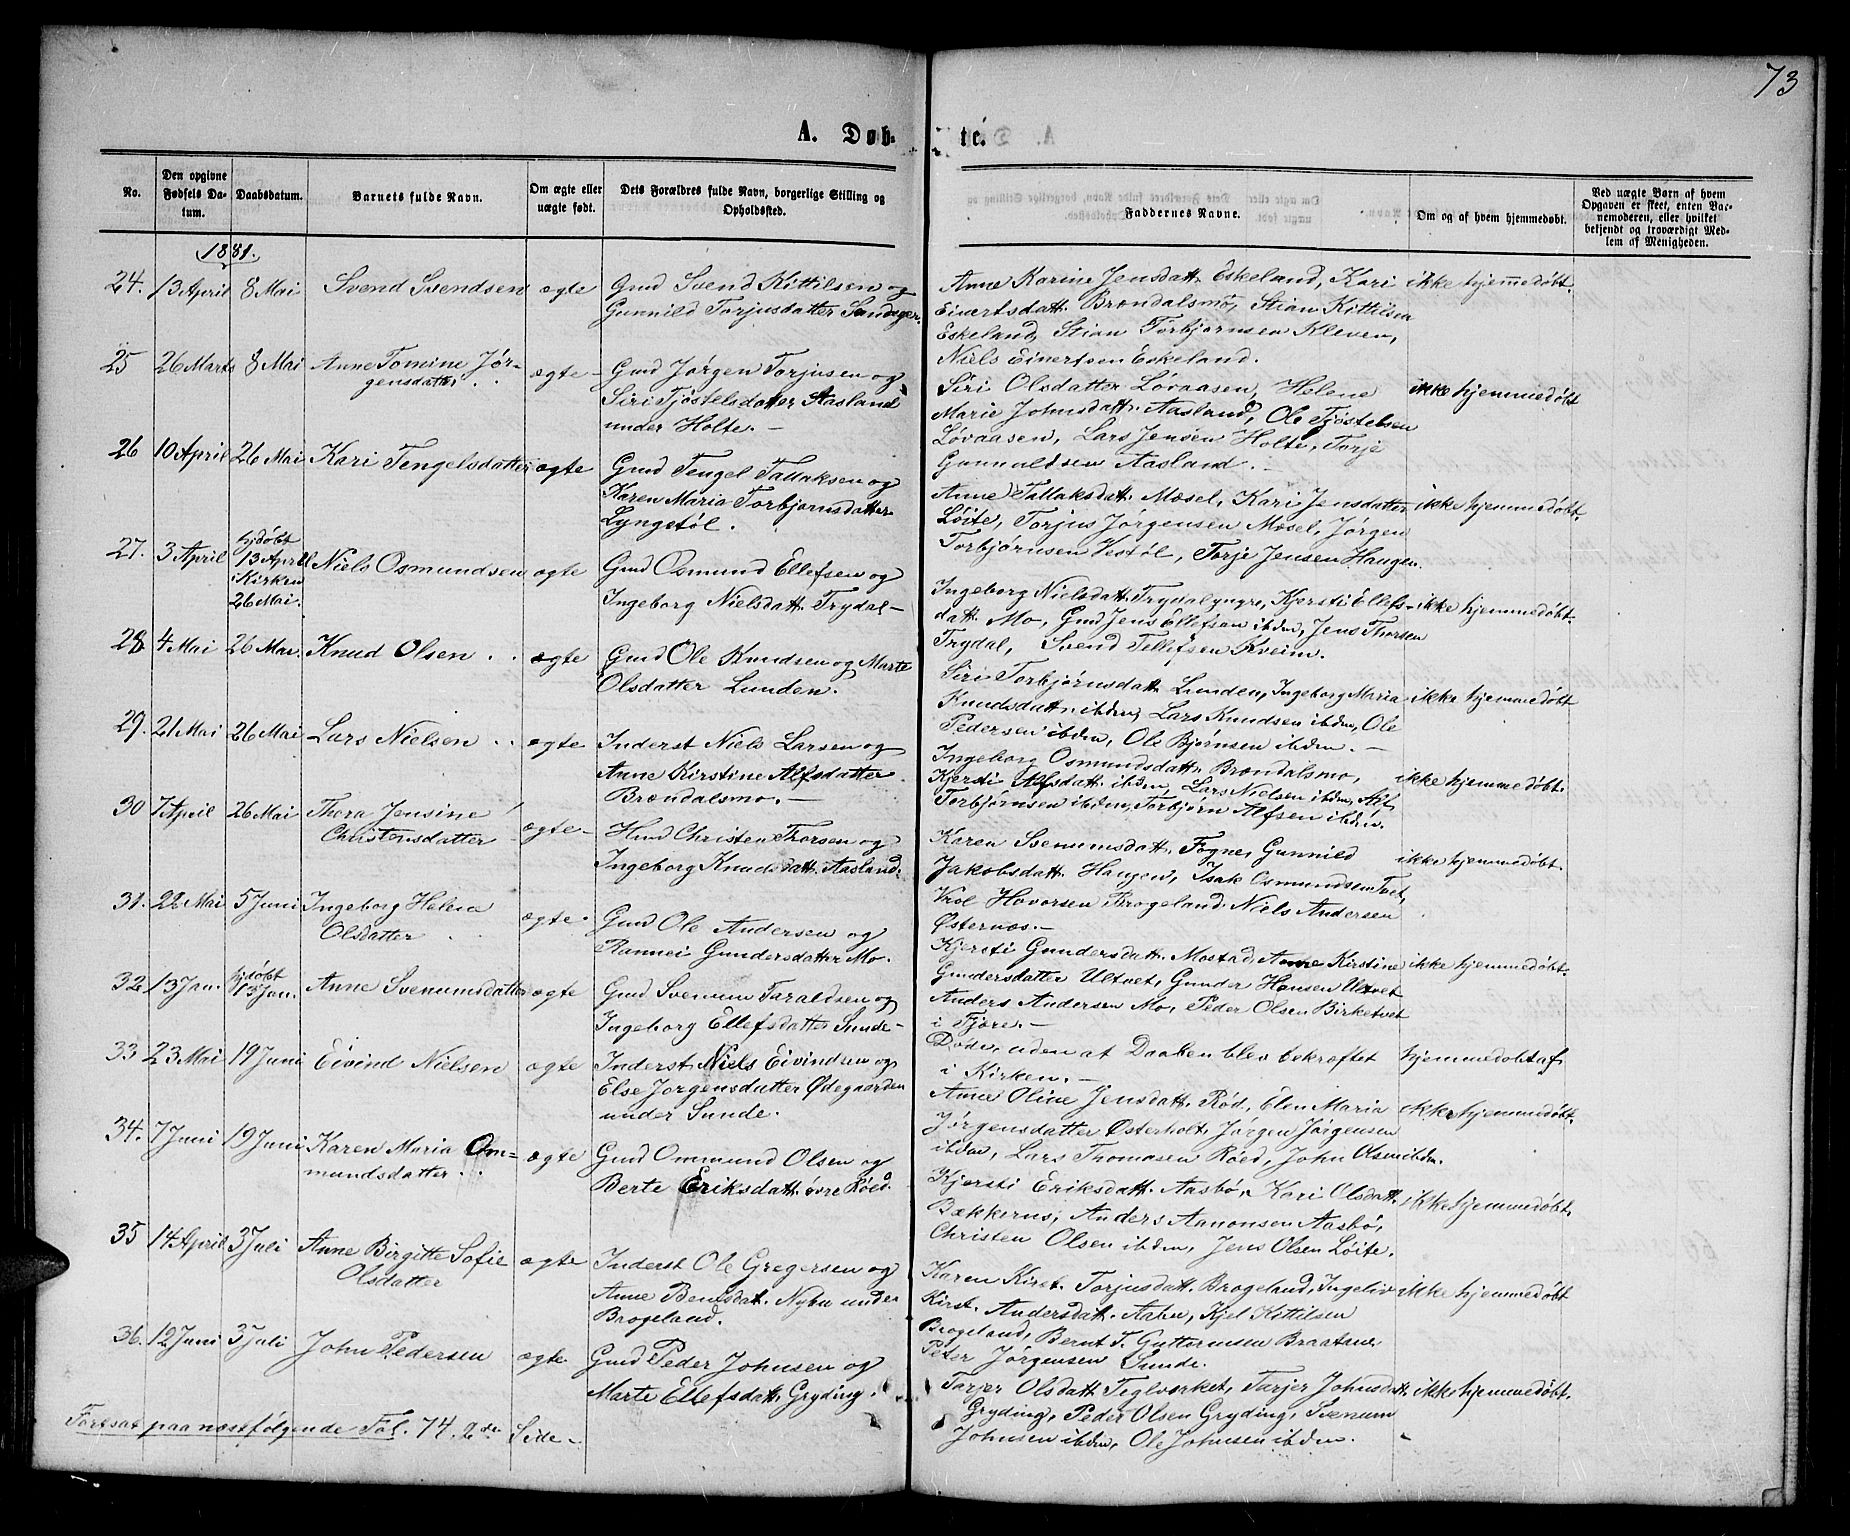 73
A. Døbte.
No.
Den opgivne Fødsels Datum.
Daabsdatum.
Barnets fulde Navn.
Om ægte eller uægte født.
Dets Forældres fulde Navn, borgerlige Stilling og Opholdssted.
Faddernes Navne.
Om og af hvem hjemmedøbt.
Ved uægte Børn af hvem Opgaven er skeet, enten Barnemoderen, eller hvilket bekjendt og troværdigt Medlem af Menigheden.
1881.
24. 13 April 8 Mai Svend Svendsen ægte Gmd Svend Kittilsen og
Gunnild Torjusdatter Sandager.
Anne Karine Jensdatt. Eskeland, Kari ikke hjemmedøbt.
Einertsdatt. Brøndalsmo, Stian Kittilsen
Eskeland, Stian Torbjørnsen Kleven,
Niels Einertsen Eskeland.
25 26 Marts 8 Mai Anne Tomine Jør-
gensdatter ægte Gmd Jørgen Torjusen og
Siri Tjøstelsdatter Aasland
under Holte.
Siri Olsdatter Løvaasen, Helene ikke hjemmedøbt
Marie Johnsdatt. Aasland, Ole Tjøstelsen
Løvaasen, Lars Jensen Holte, Torje
Gunnuldsen Aasland.
26 10 April 26 Mai Kari Tengelsdatter ægte Gmd Tengel Tallaksen og
Karen Maria Torbjørnsdatter
Lyngstøl.
Anne Tallaksdatt. Mosel, Kari Jensdatter ikke hjemmedøbt.
Løite, Torjus Jørgensen Mosel, Jørgen
Torbjørnsen Vestøl, Torje Jensen Haugen.
27. 3 April hjdøbt
13 April
i Kirken
26 Mai. Niels Osmundsen ægte Gmd Osmund Ellefsen og
Ingeborg Nielsdatt. Trydal
Ingeborg Nielsdatt. Trydal yngre, Kjersti Ellefs- ikke hjemmedøbt.
datt. Mo, Gmd Jens Ellefsen ibdm, Jens Thorsen
Trydal, Svend Tellefsen Kveim.
28 4 Mai 26 Mai. Knud Olsen ægte Gmd Ole Knudsen og Marte
Olsdatter Lunden.
Siri Torbjørnsdatt. Lunden, Ingeborg Maria ikke hjemmedøbt
Knudsdatt. ibdm, Lars Knudsen ibdm, Ole
Pedersen ibdm, Ole Bjørnsen ibdm.
29. 21 Mai 26 Mai Lars Nielsen ægte Inderst Niels Larsen og
Anne Kirstine Alfsdatter
Brøndalsmo.
Ingeborg Osmundsdatt. Brøndalsmo,
Kjersti Alfsdatt. ibdm, Lars Nielsen ibdm, Alf ikke hjemmedøbt.
Torbjørnsen ibdm, Torbjørn Alfsen ibdm.
30 7 April 26 Mai Thora Jensine
Christensdatter ægte Hmd Christen Thorsen og
Ingeborg Knudsdatt. Aasland.
Karen Svenumsdatt. Fogne, Gunnild ikke hjemmedøbt.
Jakobsdatt. Haugen, Isak Osmundsen
Hovorsen Brogeland. Niels Andersen
Østernæs.
31. 22 Mai 5 Juni Ingeborg Helene
Olsdatter ægte Gmd Ole Andersen og
Rannei Gundersdatter Mo.
Kjersti Gundersdatt. Mostad, Anne Kirstine ikke hjemmedøbt.
Gundersdatter Ultvet, Gunder Hansen Ultvet
Anders Andersen Mo, Peder Olsen Birketvet
i Fjære.
32. 13 Jan. hjdøbt
13 Jan. Anne Svenumsdatter ægte Gmd Svenum Taraldsen og
Ingeborg Ellefsdatter Sunde
Døde, uden at Daaben blev bekræftet hjemmedøbt af
i Kirken.
33 23 Mai 19 Juni Eivind Nielsen ægte Inderst Niels Eivindsen og
Else Jørgensdatter Ødegaarden
under Sunde.
Anne Oline Jensdatt. Rød, Elen Maria ikke hjemmedøbt.
Jørgensdatter Østerholt, Jørgen Jørgensen
ibdm, Lars Thomasen Røed, John Olsen ibdm.
34. 7 Juni 19 Juni Karen Maria Om-
mundsdatter ægte Gmd Ommund Olsen og
Berte Eriksdatt. øvre Røed.
Kjersti Eriksdatt. Aasbø, Kari Olsdatt. ikke hjemmedøbt.
Bækkerus, Anders Aanonsen Aasbø,
Christen Olsen ibdm, Jens Olsen Løite.
35 14 April 3 Juli Anne Birgitte Sofie
Olsdatter ægte Inderst Ole Gregersen og
Anne Bentsdat. Nybu under
Brogeland.
Karen Kirst. Torjusdatt. Brogeland, Ingeliv ikke hjemmedøbt
Kirst. Andersdatt. Aabu, Kjel Kittilsen
Brogeland, Bernt T. Guttormsen Braatane
Peter Jørgensen Sunde.
36. 12 Juni 3 Juli John Pedersen ægte Gmd Peder Johnsen og
Marte Ellefsdatt. Gryding.
Tarjer Olsdatt. Teglverket, Tarjer Johnsdatt. ikke hjemmedøbt.
Gryding, Peder Olsen Gryding, Svenum
Johnsen ibdm, Ole Johnsen ibdm.
Fortsat paa næstfølgende Fol. 74. 2de Side